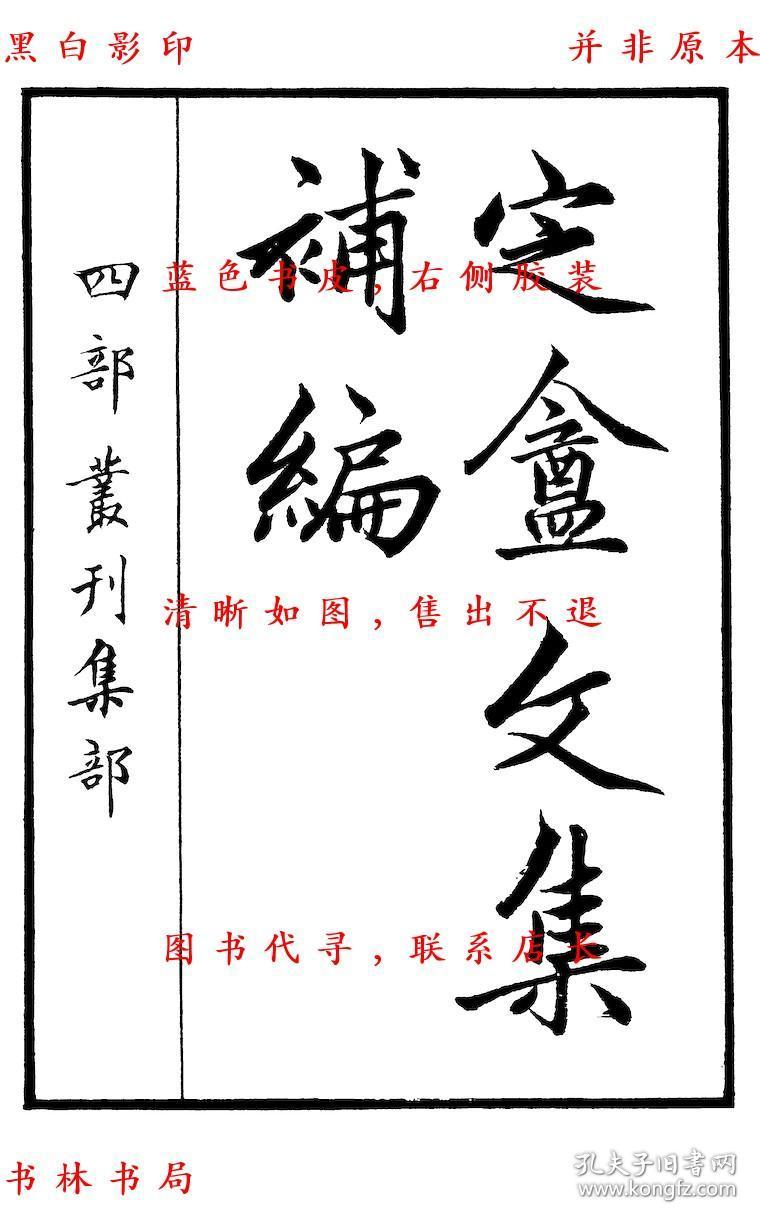 黑白影印
并非原本
定盦文集
補編
四部叢刊集部
蓝色书皮，右侧胶装
清晰如图，售出不退
图书代寻，联系店长
书林书局
孔夫子旧书网
www.kongfz.com